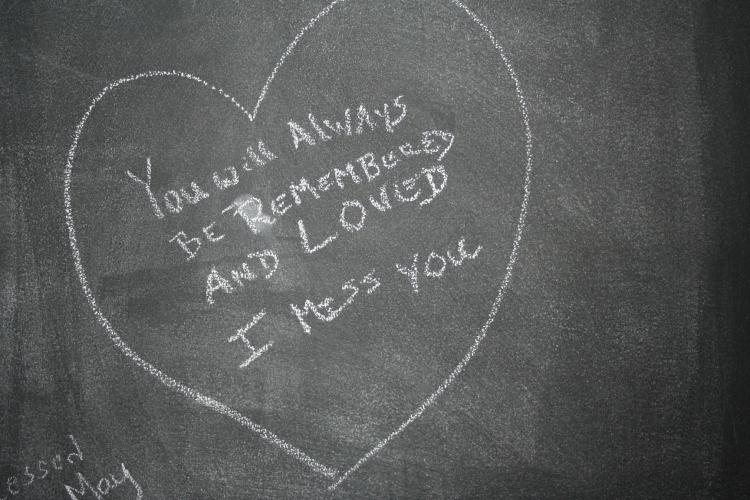 You will Always
BE REMEMBERED
AND LOVED
I MISS YOU
essed
May